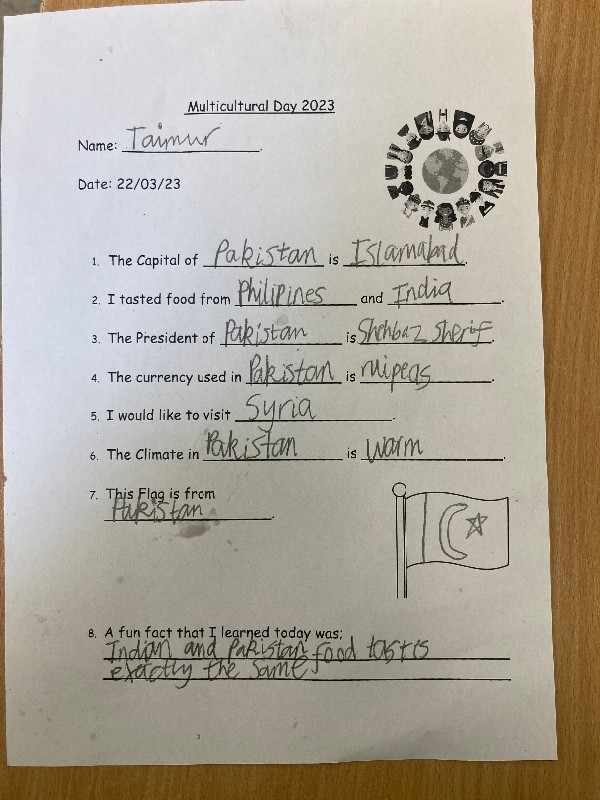 Multicultural Day 2023
Name: Taimur.
Date: 22/03/23
1. The Capital of Pakistan is Islamabad.
2. I tasted food from Philipines and India.
3. The President of Pakistan is Shehbaz Sherif.
4. The currency used in Pakistan is ruipees.
5. I would like to visit Syria.
6. The Climate in Pakistan is warm.
7. This Flag is from
Pakistan.
8. A fun fact that I learned today was;
Indian and Pakistan food tastes
exactly the same